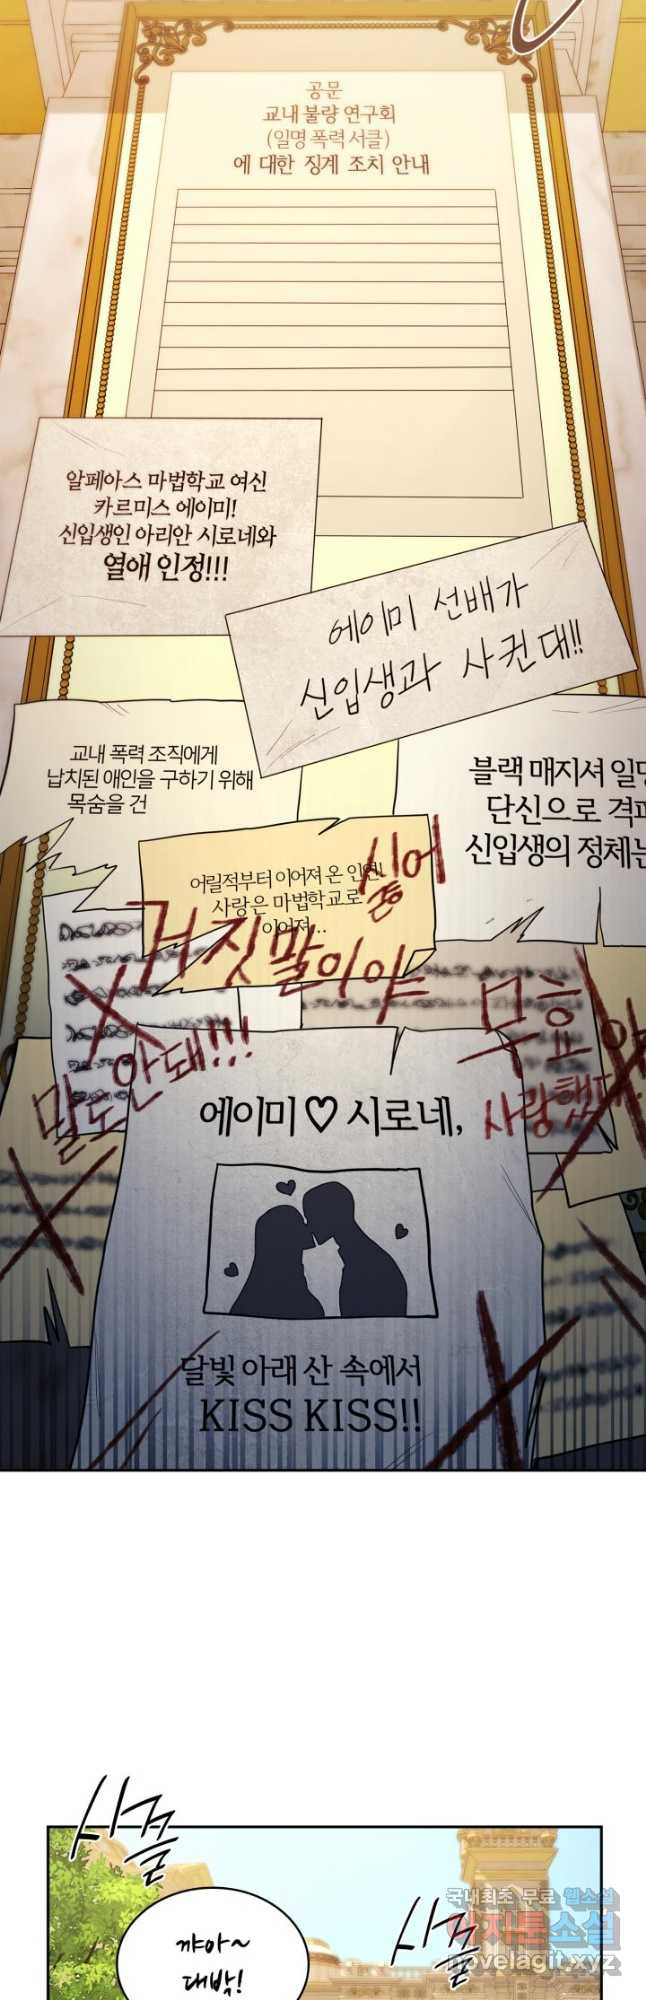 공문
교내 불량 연구회
(일명 폭력 서클)
에 대한 징계 조치 안내
알페아스 마법학교 여신
카르미스 에이미!
신입생인 아리안 시로네와
열애 인정!!!
에이미 선배가
신입생과 사귄대!!
교내 폭력 조직에게
납치된 애인을 구하기 위해
목숨을 건
블랙 매지셔 일명
단신으로 격파
신입생의 정체는
어릴적부터 이어져 온 인연!
사랑은 마법학교로
이어져...
싫어
거짓말이야
무효야
말도 안돼!!!
사랑했다
에이미♡시로네,
달빛 아래 산 속에서
KISS KISS!!
시끌
시끌
꺄아~
대박!
국내최초 무료 웹소설
novelagit.xyz